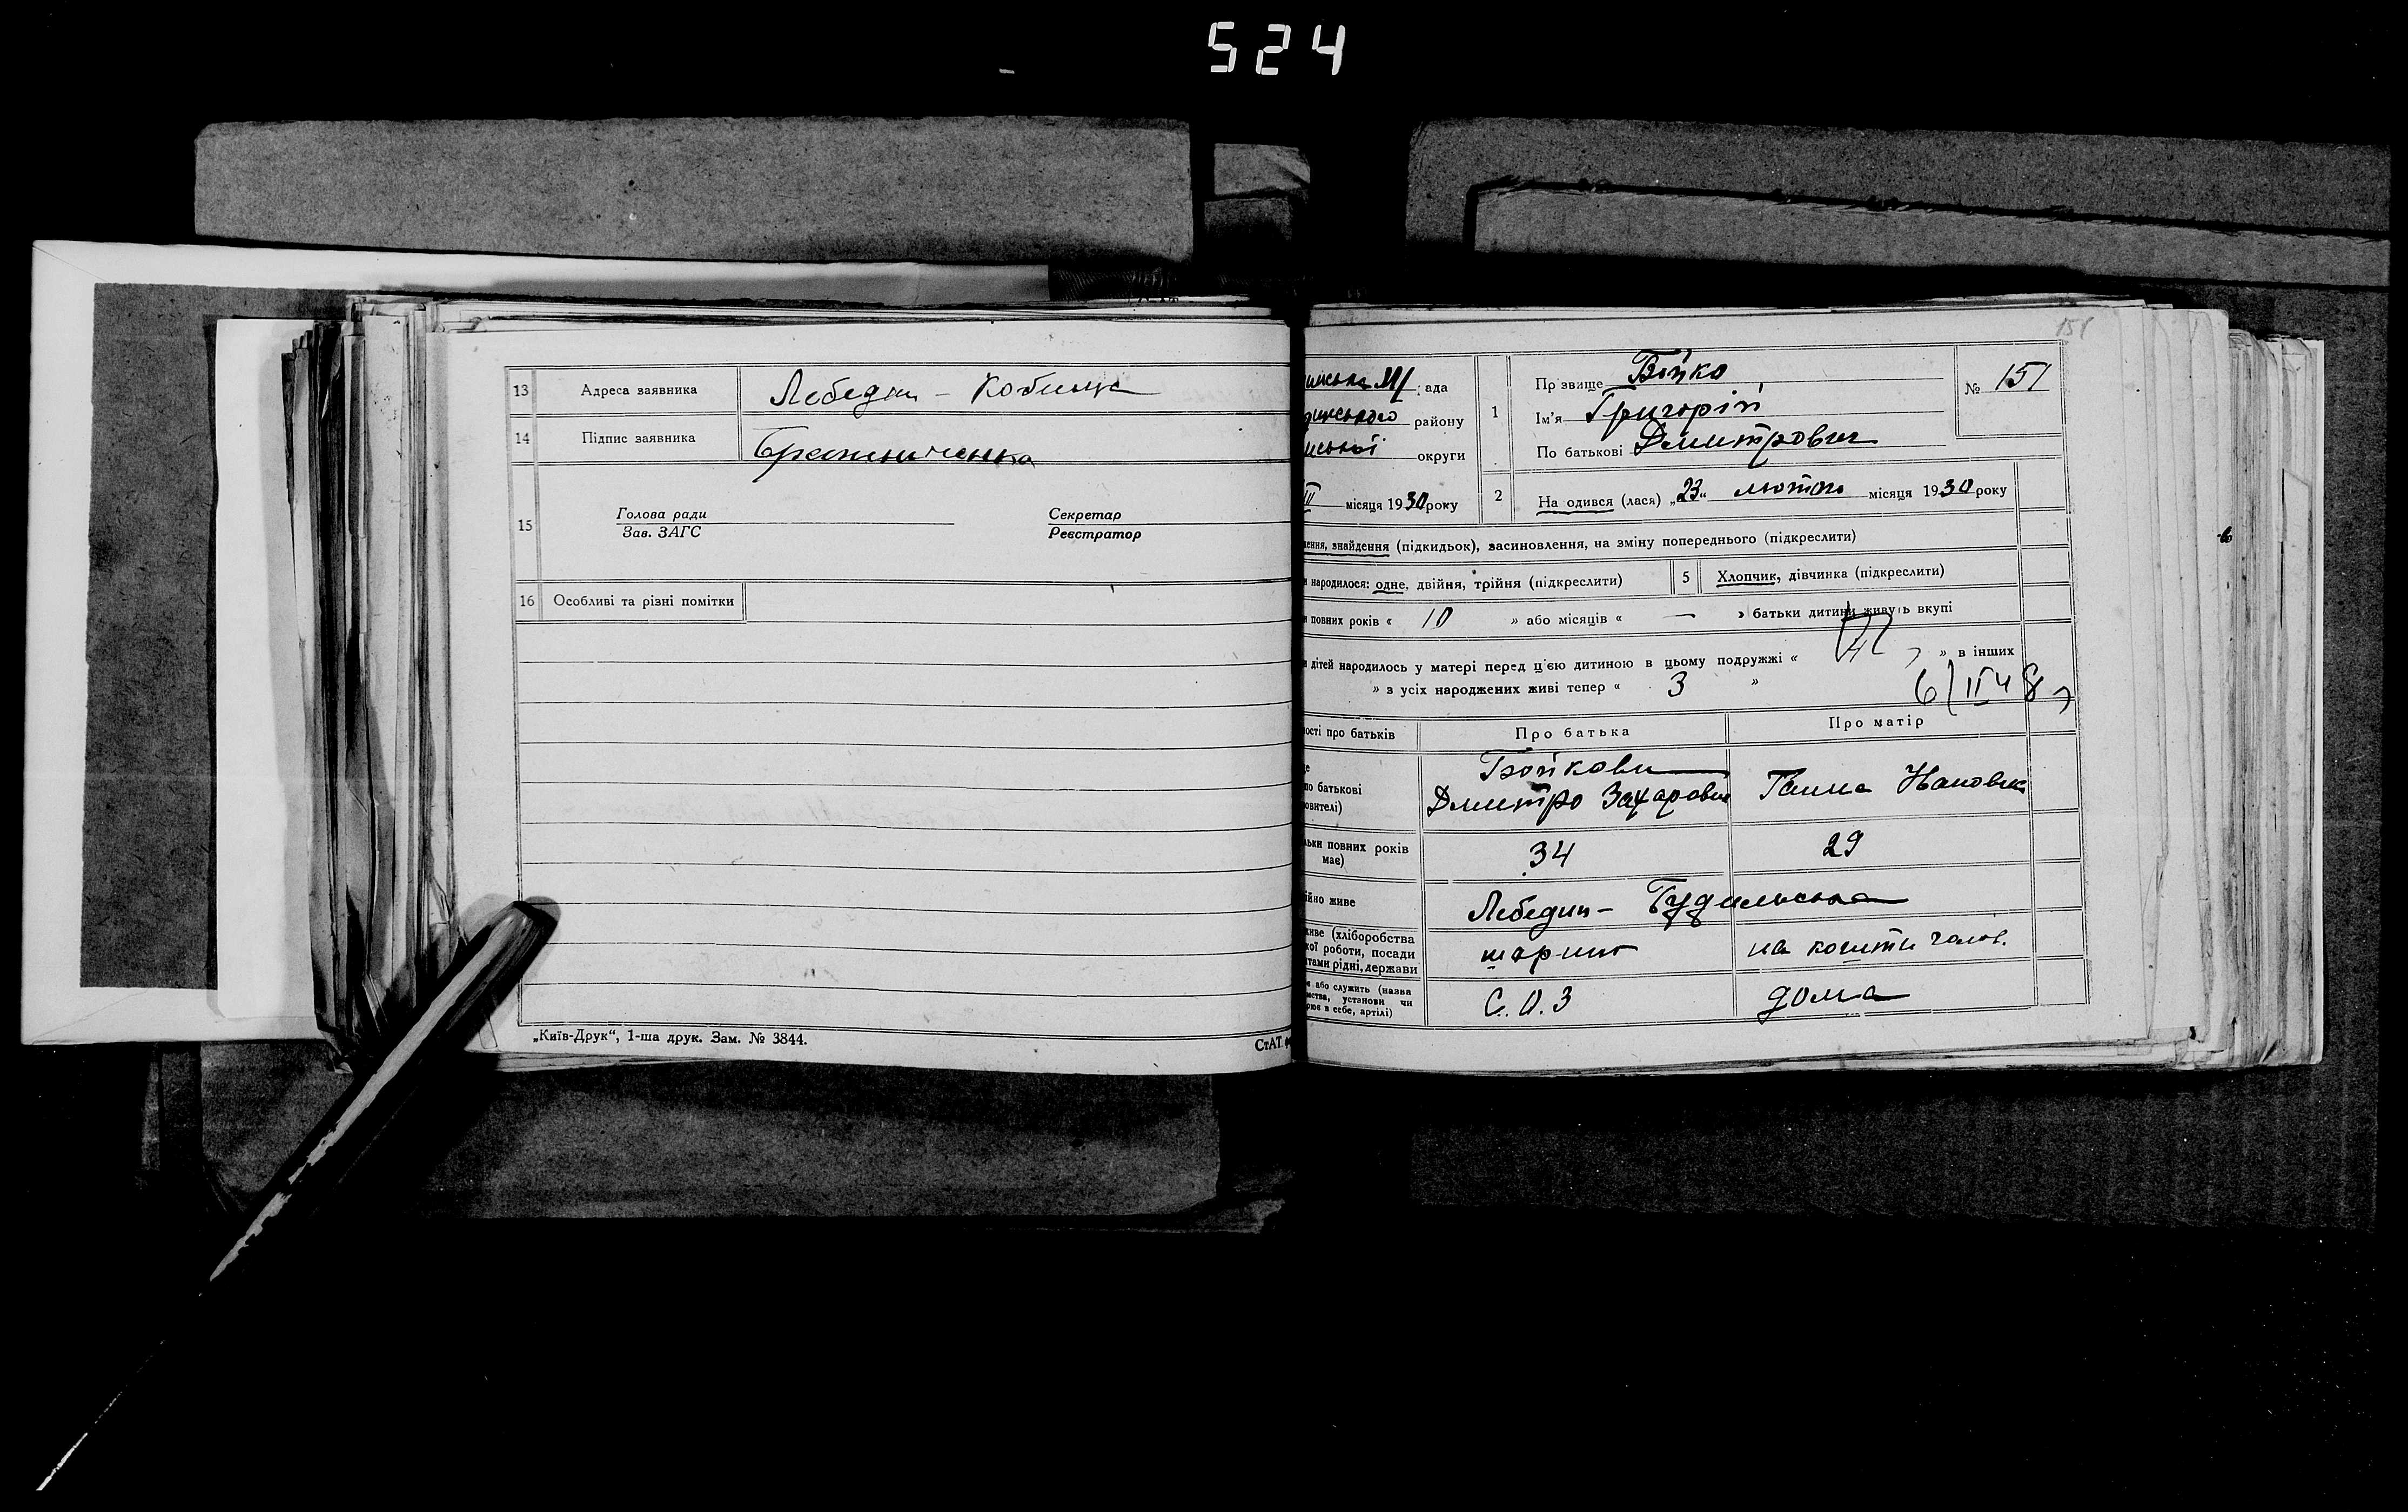 524
13 Адреса заявника Лебедин – Кобищa
14 Підпис заявника
15 Голова ради Секретар
Зав. ЗАГС Реєстратор
16 Особливі та різні помітки
„Київ-Друк“, 1-ша друк. Зам. № 3844.
СтАТ
151
ада
району
округи
місяця 1930 року
1 Прізвище Бойко
Ім'я Григорій
По батькові Дмитрович
№ 151
2 На одився (лася) „23“ лютого місяця 1930 року
ення, знайдення (підкидьок), засиновлення, на зміну попереднього (підкреслити)
и народилося: одне, двійня, трійня (підкреслити) 5 Хлопчик, дівчинка (підкреслити)
и повних років « 10 » або місяців « — » батьки дитини живуть вкупі
и дітей народилось у матері перед цією дитиною в цьому подружжі « » в інших
» з усіх народжених живі тепер « 3 »
ості про батьків Про батька Про матір
по батькові
овителі)
Бойкови
Дмитро Захарович Ганна
льки повних років має) 34 29
ійно живе Лебедин –
живе (хліборобства
кої роботи, посади
тами рідні, держави
на кошти голов.
або служить (назва
мства, установи чи
рює в себе, артілі)
С.О.З дома